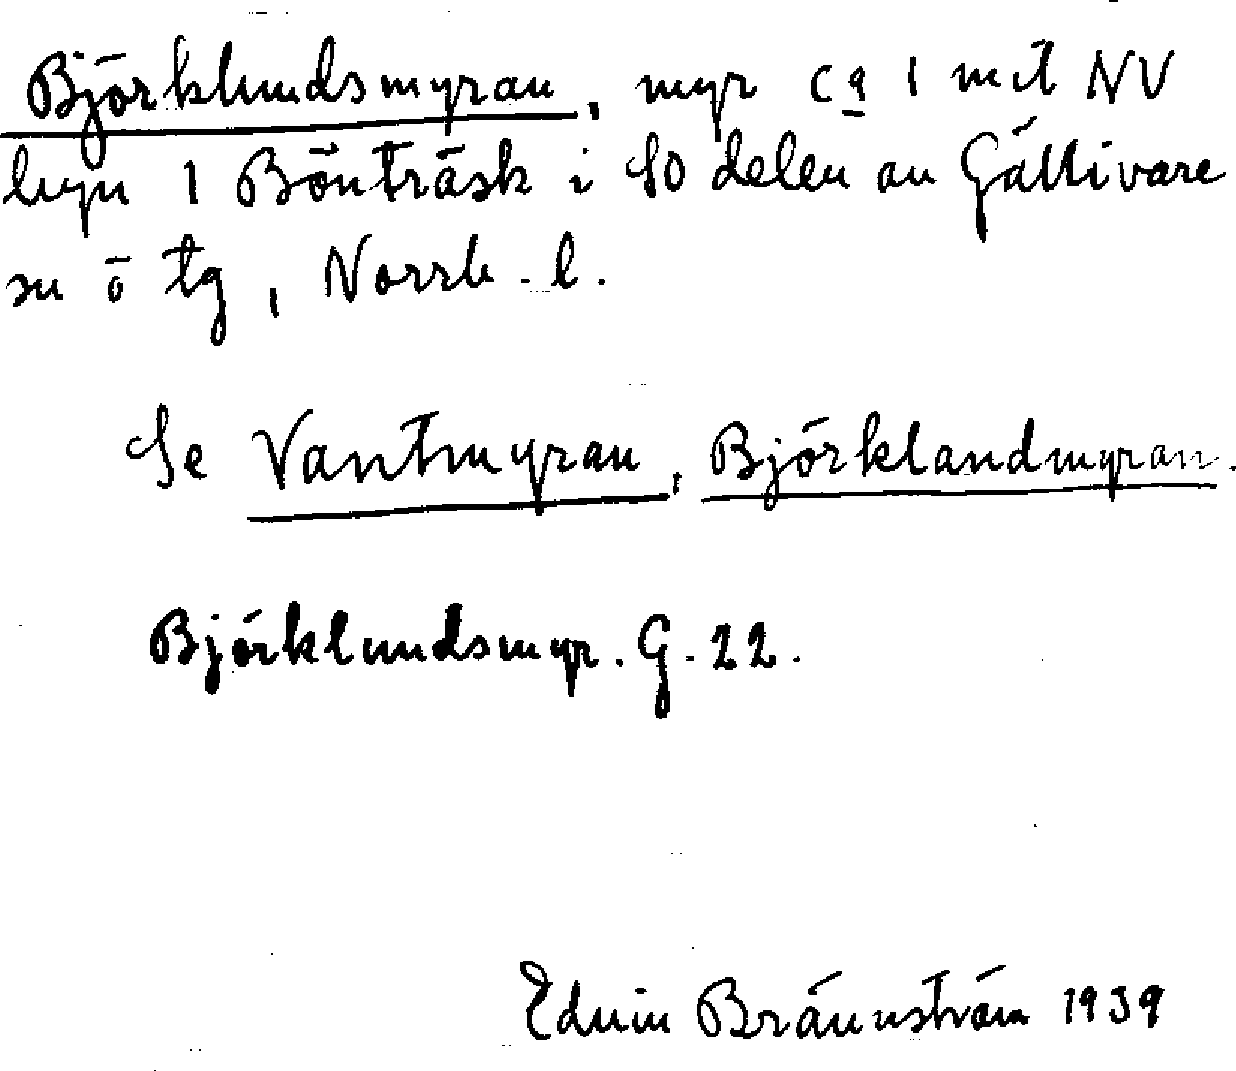 Björklundsmyran, myr ca 1 mil NV
byn 1 Bönträsk i SO delen av Gällivare
sn ö tg, Norrb. l.
Se Vantmyran, Björklandmyran.
Björklundsmyr. G. 22.
Edvin Brännström 1939